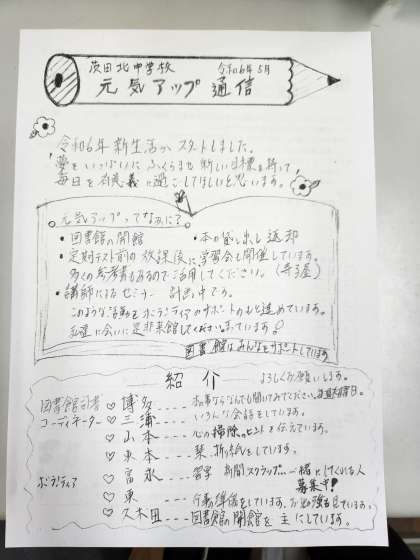 茨田北中学校 令和6年5月
元気アップ通信
令和6年新生活がスタートしました。
夢をいっぱいにふくらませ新しい目標を持って
毎日を有意義に過ごしてほしいと思います。
元気アップってなぁに?
・図書館の開館 ・本の貸し出し返却
・定期テスト前の放課後に学習会も開催しています。
多くの参考書もあるのでご活用してください。(寺子屋)
・講師によるセミナー 計画中です。
このような活動をボランティアのサポートのもと進めています。
私達に会いに是非来館してください。まっています!
図書館はみんなをサポートしています
紹介 よろしくお願いします。
図書館司書 ♡ 博多 --- 本の事ならなんでも聞いてみてください。
コーディネーター ♡ 三浦 ---- いろんな会話をしています。
♡ 山本 ---- 心の掃除のヒントを伝えています。
♡ 東本 ---- 栞、折り紙をしています。
ボランティア ♡ 富永 ---- 習字 新聞スクラップ...一緒にしてくれる人
募集中!
♡ 東 ---- 行事の準備をしています。
♡ 久木田 --- 図書館の開館を主にしています。